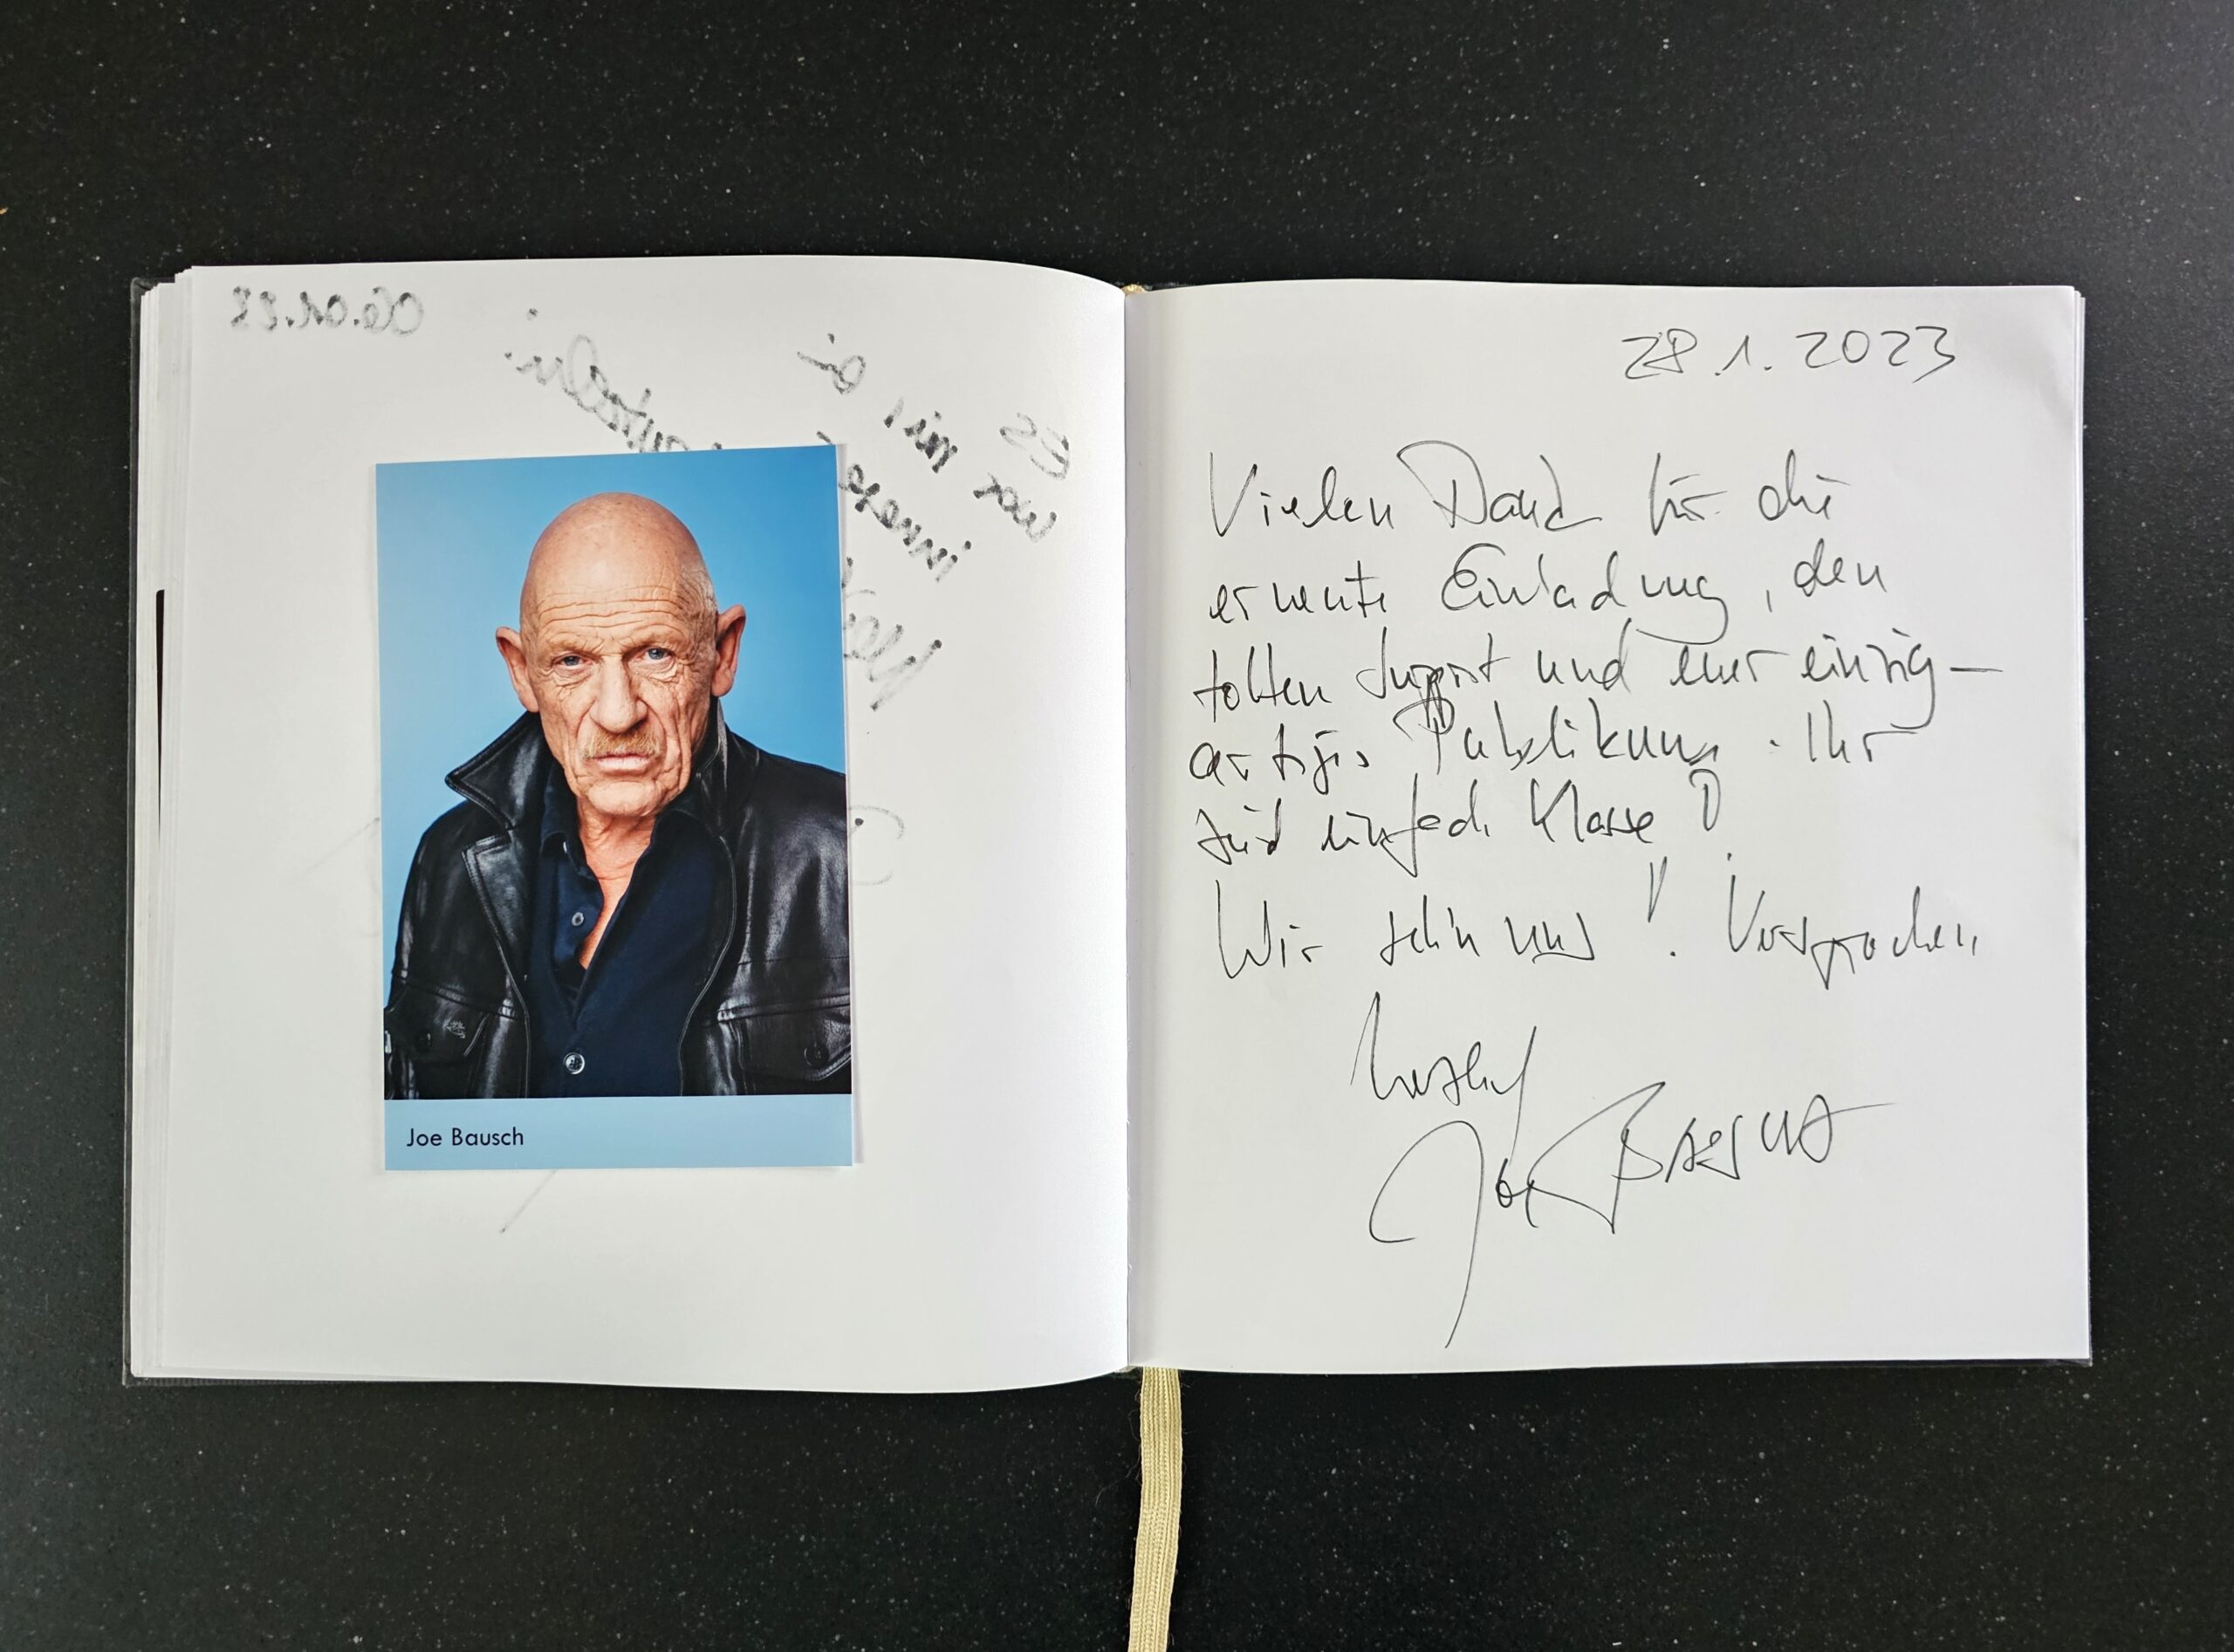 06.01.23
Es
war mir
innere
Joe Bausch
28.1.2023
Vielen Dank für die
erneute Einladung, den
tollen Support und euer einzig-
artiges Publikum. Ihr
seid einfach Klasse!
Wir sehn uns! Versprochen
Joe Bausch